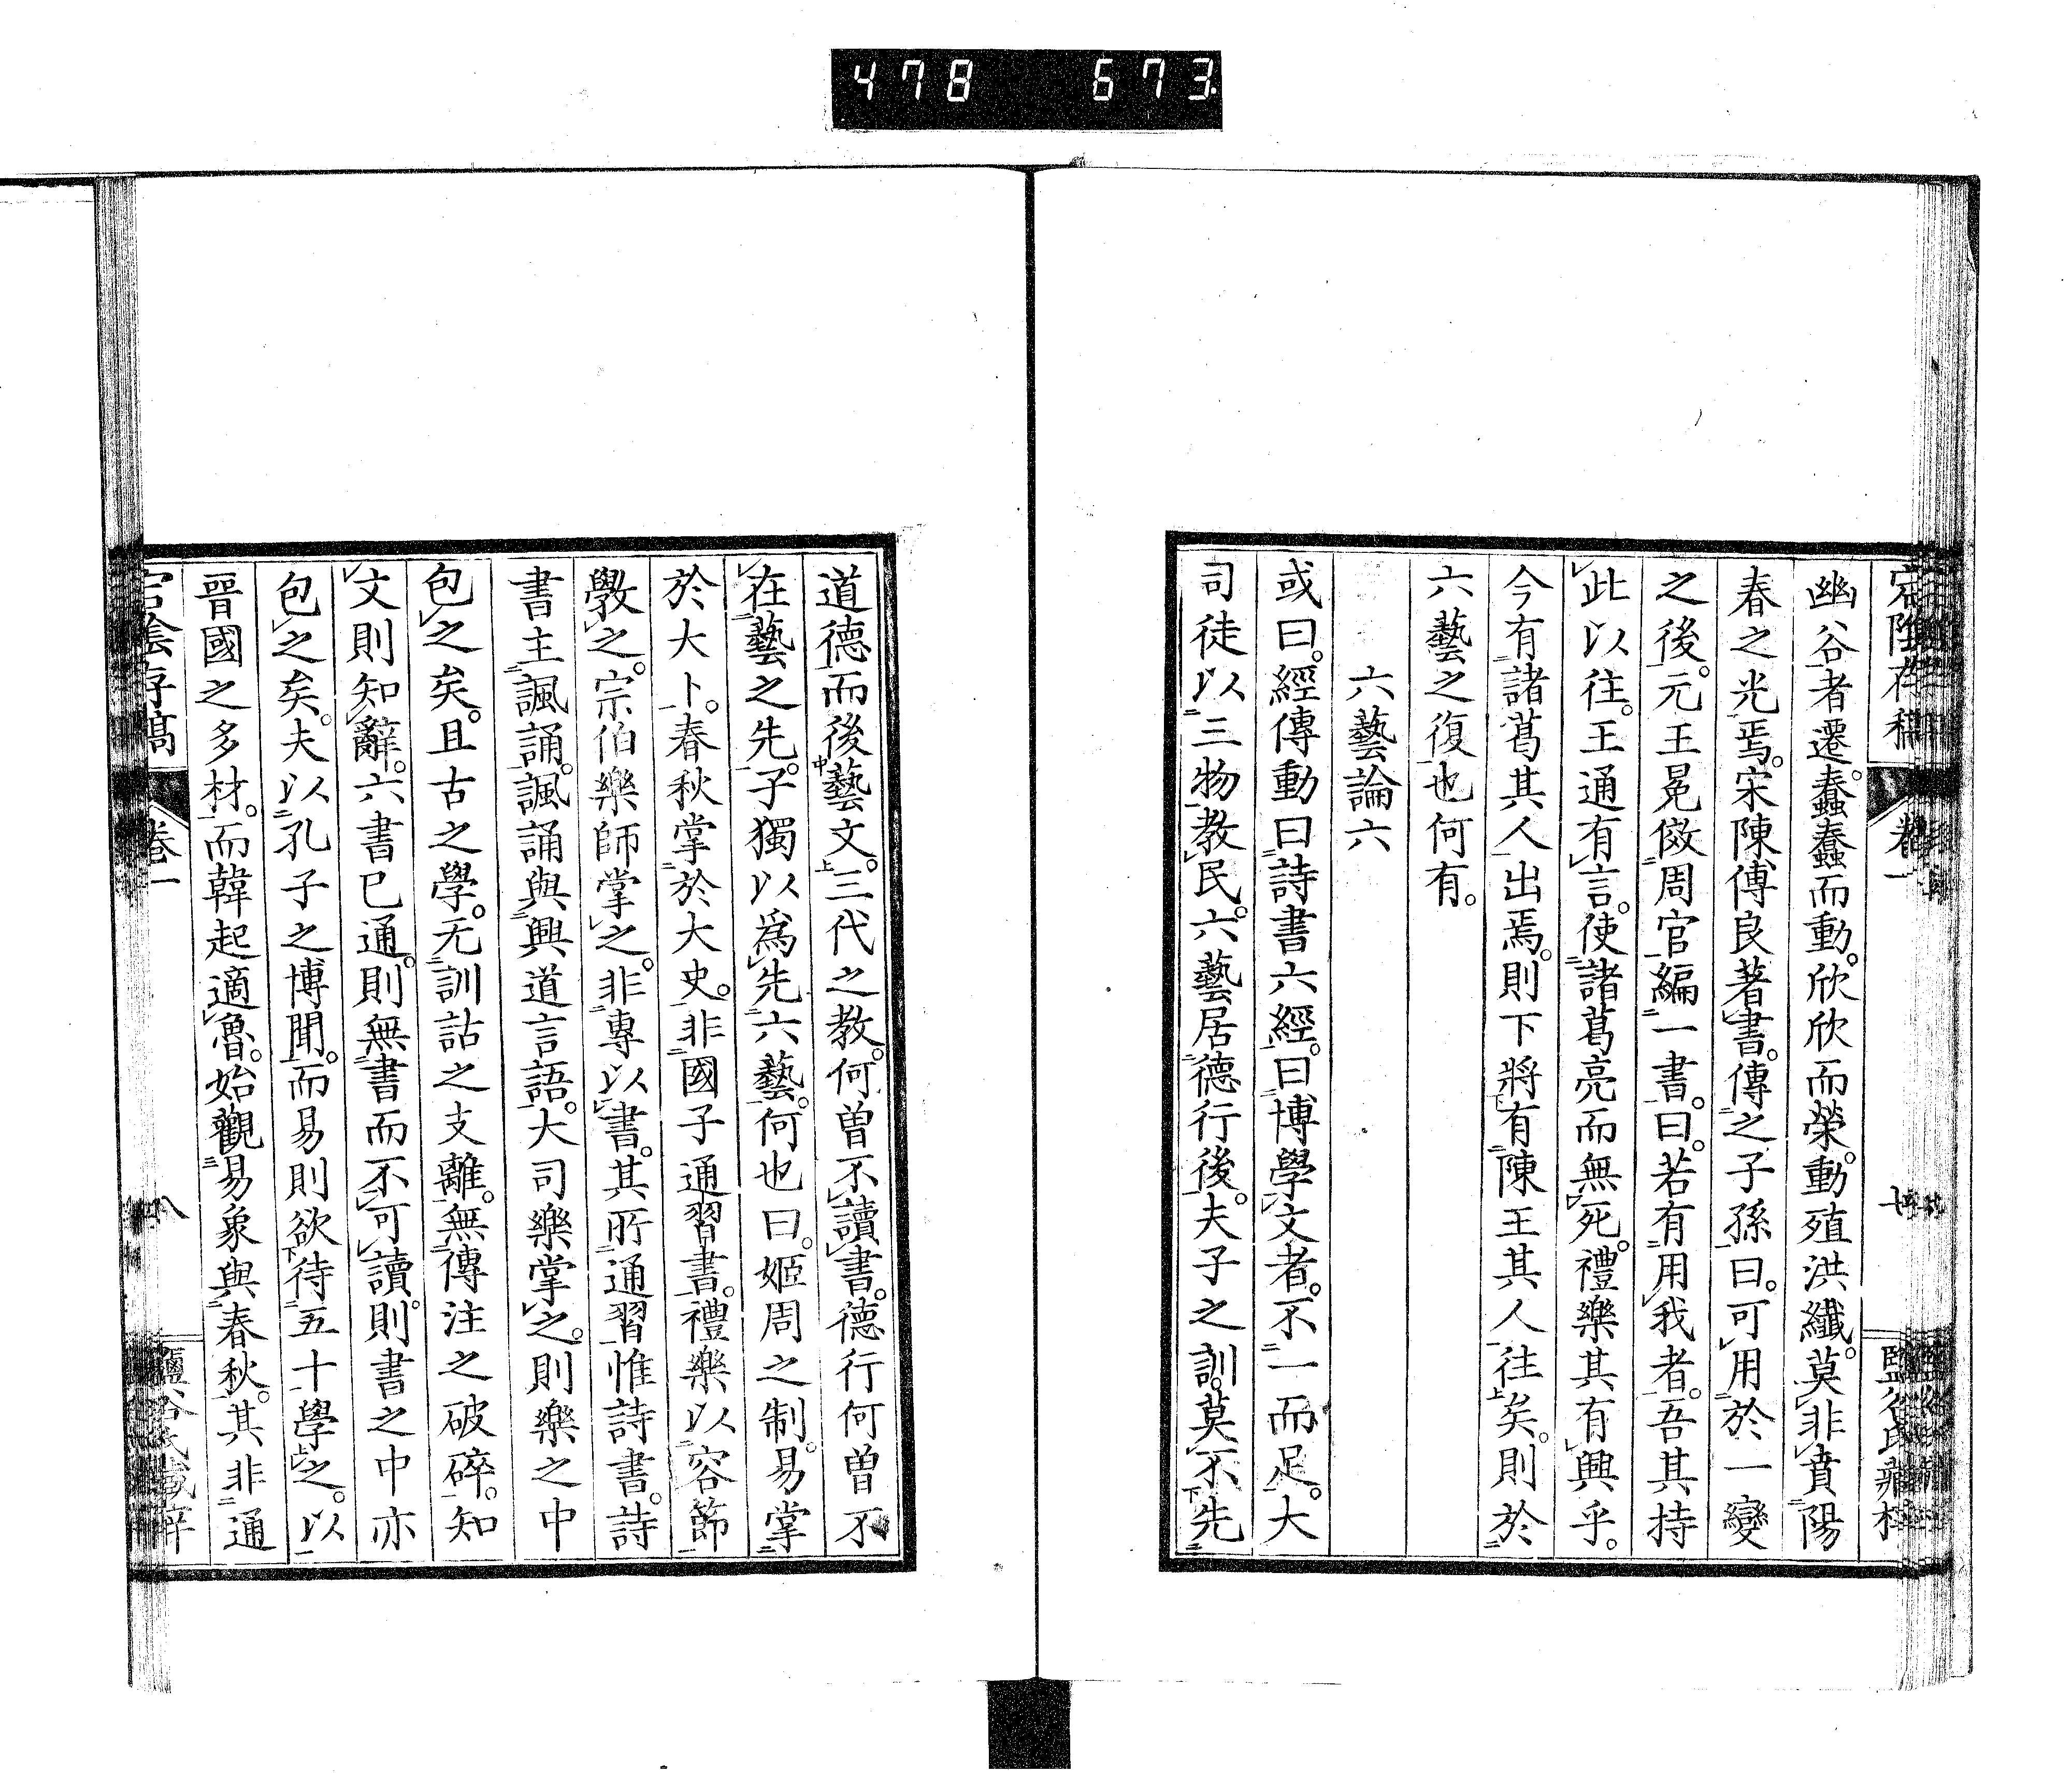 478 673
幽谷者遷。蠢蠢而動。欣欣而榮。動殖洪纖。莫非賁陽
春之光焉。宋陳傅良著書。傳之子孫曰。可用於一變
之後。元王冕倣周官編一書。曰。若有用我者。吾其持
此以往。王通有言。使諸葛亮而無死。禮樂其有興乎。
今有諸葛其人出焉。則下將有陳王其人往矣。則於
六藝之復也何有。
六藝論六
或曰。經傳動曰詩書六經。曰博學文者。不一而足。大
司徒以三物教民。六藝居德行後。夫子之訓。莫不先
道德而後藝文。三代之教。何曾不讀書。德行何曾不
在藝之先。子獨以爲先六藝。何也曰。姬周之制。易掌
於大卜。春秋掌於大史。非國子通習書。禮樂以容節
斆之。宗伯樂師掌之。非專以書。其所通習惟詩書。詩
書主諷誦。諷誦與興道言語。大司樂掌之。則樂之中
包之矣。且古之學。无訓詁之支離。無傳注之破碎。知
文則知辭。六書已通。則無書而不可讀。則書之中亦
包之矣。夫以孔子之博聞。而易則欲待五十學之。以
晉國之多材。而韓起適魯。始觀易象與春秋。其非通
存稾 卷一 八